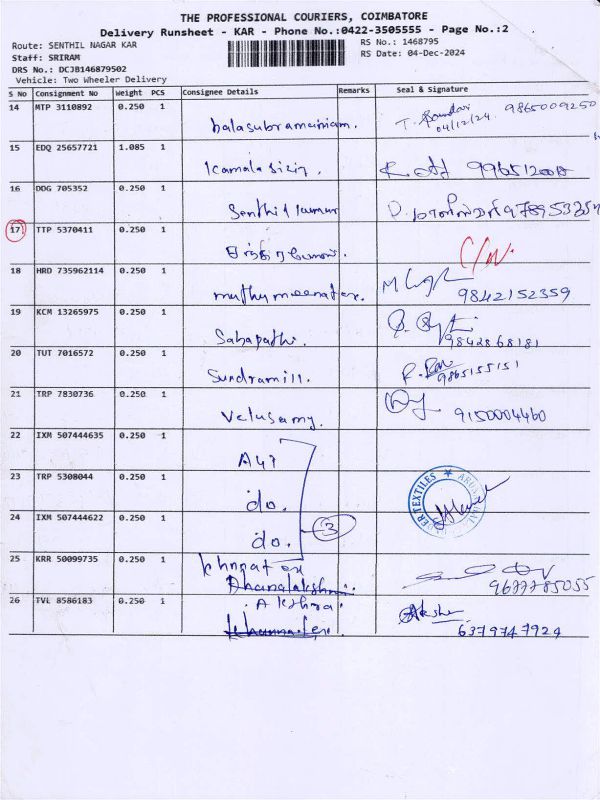 THE PROFESSIONAL COURIERS, COIMBATORE
Delivery Runsheet - KAR - Phone No.:0422-3505555 - Page No.:2
Route: SENTHIL NAGAR KAR
RS No.: 1468795
Staff: SRIRAM
RS Date: 04-Dec-2024
DRS No.: DCJB146879502
Vehicle: Two Wheeler Delivery
S No Consignment No Weight PCS Consignee Details Remarks Seal & Signature
14 MTP 3110892 0.250 1 balasubramaniam. 9865009250
04/12/24
15 EDQ 25657721 1.085 1
16 DDG 705352 0.250 1 Senthil kumar
17 TTP 5370411 0.250 1
18 HRD 735962114 0.250 1 muthumeenatex. 9842152359
19 KCM 13265975 0.250 1 Sabapathi. 9842868181
20 TUT 7016572 0.250 1 Sundramill. 9865155151
21 TRP 7830736 0.250 1 Velusamy. 9150004460
22 IXM 507444635 0.250 1
23 TRP 5308044 0.250 1 do.
24 IXM 507444622 0.250 1 do. 3
25 KRR 50099735 0.250 1
Dhanalakshmi. 9677785055
26 TVL 8586183 0.250 1 Akshra.
6379747924